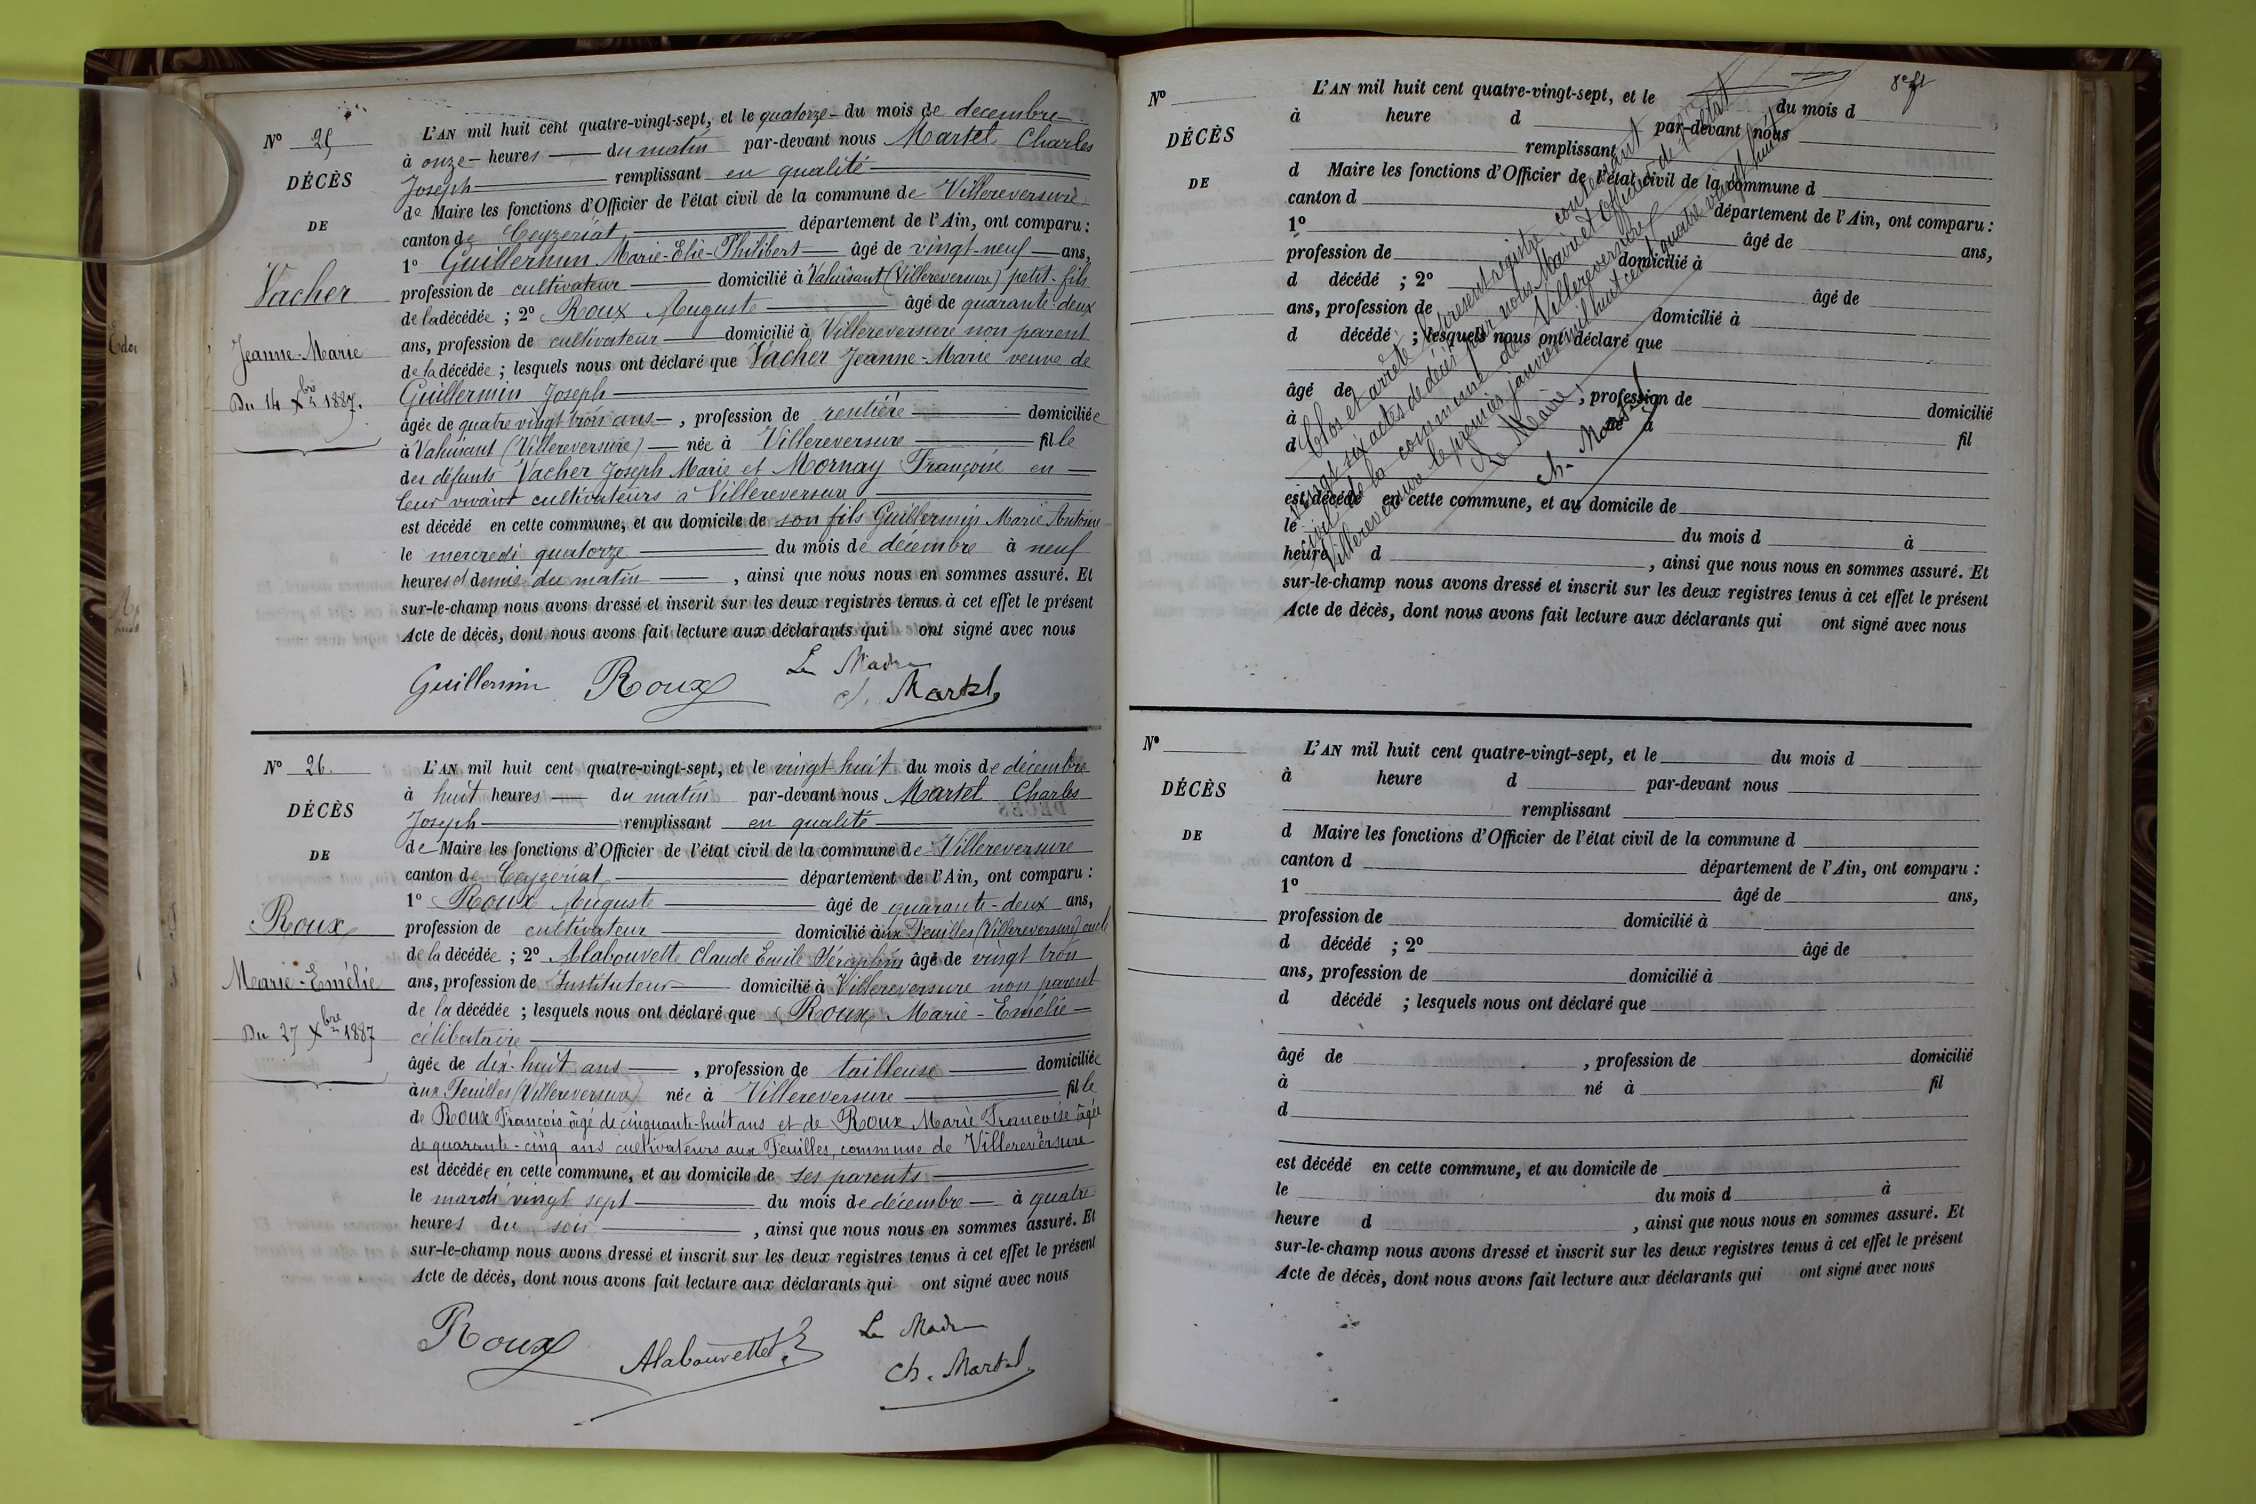 N° 25
DÉCÈS
DE
Vacher
Jeanne-Marie
Du 14 Xbre 1887.
L'AN mil huit cent quatre-vingt-sept, et le quatorze du mois de decembre
à onze heures du matin par-devant nous Martel Charles
Joseph remplissant en qualité
de Maire les fonctions d'Officier de l'état civil de la commune de Villereversure
canton de Ceyzeriat, département de l'Ain, ont comparu :
1° Guillermin Marie-Elie-Philibert âgé de vingt-neuf ans,
profession de cultivateur domicilié à Valuisant (Villereversure) petit-fils
de la décédée ; 2° Roux Auguste âgé de quarante deux
ans, profession de cultivateur domicilié à Villereversure non parent
de la décédée ; lesquels nous ont déclaré que Vacher Jeanne-Marie veuve de
Guillermin Joseph
âgée de quatre vingt trois ans, profession de rentière domiciliée
à Valuisant (Villereversure) née à Villereversure fille
des défunts Vacher Joseph Marie et Mornay Françoise en
leur vivant cultivateurs à Villereversure
est décédé en cette commune, et au domicile de son fils Guillermin Marie Antoine
le mercredi quatorze du mois de décembre à neuf
heures et demie du matin, ainsi que nous nous en sommes assuré. Et
sur-le-champ nous avons dressé et inscrit sur les deux registres tenus à cet effet le présent
Acte de décès, dont nous avons fait lecture aux déclarants qui ont signé avec nous
Guillermin Roux Le Maire
Ch. Martel
N° 26.
DÉCÈS
DE
Roux
Marie-Emélie
Du 27 Xbre 1887
L'AN mil huit cent quatre-vingt-sept, et le vingt huit du mois de décembre
à huit heures du matin par-devant nous Martel Charles
Joseph remplissant en qualité
de Maire les fonctions d'Officier de l'état civil de la commune de Villereversure
canton de Ceyzeriat, département de l'Ain, ont comparu :
1° Roux Auguste âgé de quarante-deux ans,
profession de cultivateur domicilié aux Feuilles (Villereversure) oncle
de la décédée ; 2° Alabouvette Claude Emile Séraphin âgé de vingt trois
ans, profession de Instituteur domicilié à Villereversure non parent
de la décédée ; lesquels nous ont déclaré que Roux Marie-Emélie
célibataire
âgée de dix-huit ans, profession de tailleuse domiciliée
aux Feuilles (Villereversure) née à Villereversure fille
de Roux François âgé de cinquante-huit ans et de Roux Marie Françoise âgée
de quarante-cinq ans cultivateurs aux Feuilles, commune de Villereversure
est décédée en cette commune, et au domicile de ses parents
le mardi vingt sept du mois de décembre à quatre
heures du soir, ainsi que nous nous en sommes assuré. Et
sur-le-champ nous avons dressé et inscrit sur les deux registres tenus à cet effet le présent
Acte de décès, dont nous avons fait lecture aux déclarants qui ont signé avec nous
Roux Alabouvette Le Maire
Ch. Martel
N°
DÉCÈS
DE
L'AN mil huit cent quatre-vingt-sept, et le du mois d
à heure d par-devant nous
remplissant
d Maire les fonctions d'Officier de l'état civil de la commune d
canton d département de l'Ain, ont comparu :
1° âgé de ans,
profession de domicilié à
d décédé ; 2° âgé de
ans, profession de domicilié à
d décédé ; lesquels nous ont déclaré que
âgé de , profession de domicilié
à né à fil
d
est décédé en cette commune, et au domicile de
le du mois d à
heure d , ainsi que nous nous en sommes assuré. Et
sur-le-champ nous avons dressé et inscrit sur les deux registres tenus à cet effet le présent
Acte de décès, dont nous avons fait lecture aux déclarants qui ont signé avec nous
Clos et arrêté le présent registre contenant
vingt six actes de décès par nous Maire et Officier de l'état
civil de la commune de Villereversure
Villereversure le premier janvier mil huit cent quatre vingt huit
Le Maire,
Ch. Martel
N°
DÉCÈS
DE
L'AN mil huit cent quatre-vingt-sept, et le du mois d
à heure d par-devant nous
remplissant
d Maire les fonctions d'Officier de l'état civil de la commune d
canton d département de l'Ain, ont comparu :
1° âgé de ans,
profession de domicilié à
d décédé ; 2° âgé de
ans, profession de domicilié à
d décédé ; lesquels nous ont déclaré que
âgé de , profession de domicilié
à né à fil
d
est décédé en cette commune, et au domicile de
le du mois d à
heure d , ainsi que nous nous en sommes assuré. Et
sur-le-champ nous avons dressé et inscrit sur les deux registres tenus à cet effet le présent
Acte de décès, dont nous avons fait lecture aux déclarants qui ont signé avec nous